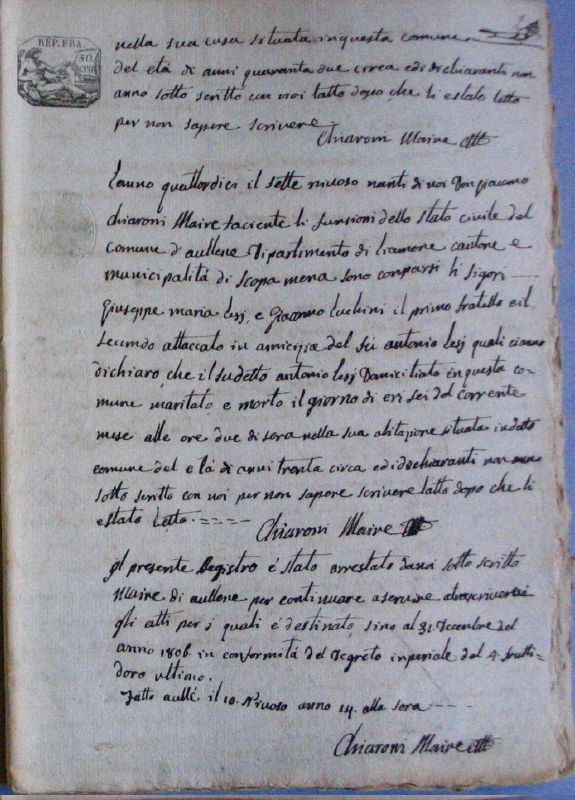 REP. FRA.
50
cen
nella sua casa situata in questa comune
del etá di anni quaranta due circa edi dichiaranti non
anno sotto scritto con noi tatto dopo che li estato letto
per non sapere scrivere
Chiaroni Maire
lanno quattordici il sette nivoso nanti di noi Don giacomo
chiaroni Maire faciente li funsioni dello stato civile del
Comune d'aullene Dipartimento di liamone cantone e
municipalitá di scopa mena sono comparsi li sigori
Giuseppe maria lesj, e Giacomo luchini il primo fratello e il
secundo attaccato in amicizia del fú antonio lesj quali
dichiaro che il sudetto antonio lesj Domiciliato in questa co-
mune maritato e morto il giorno di eri sei del corrente
mese alle ore due di sera nella sua abitazione situata in detto
comune del e tá di anni trenta circa edi dichiaranti non anno
sotto scritto con noi per non sapere scrivere tatto dopo che li
estato letto
Chiaroni Maire
il presente Registro é stato arrestato da noi sotto scritto
Maire di aullene per continuare a servire
gli atti per i quali é destinato, sino al 31 Decembre del
anno 1806 in conformitá del Degreto inperiale del 4. frutti=
doro ultimo.
fatto aullé il 10. Nivoso anno 14. alla sera
Chiaroni Maire